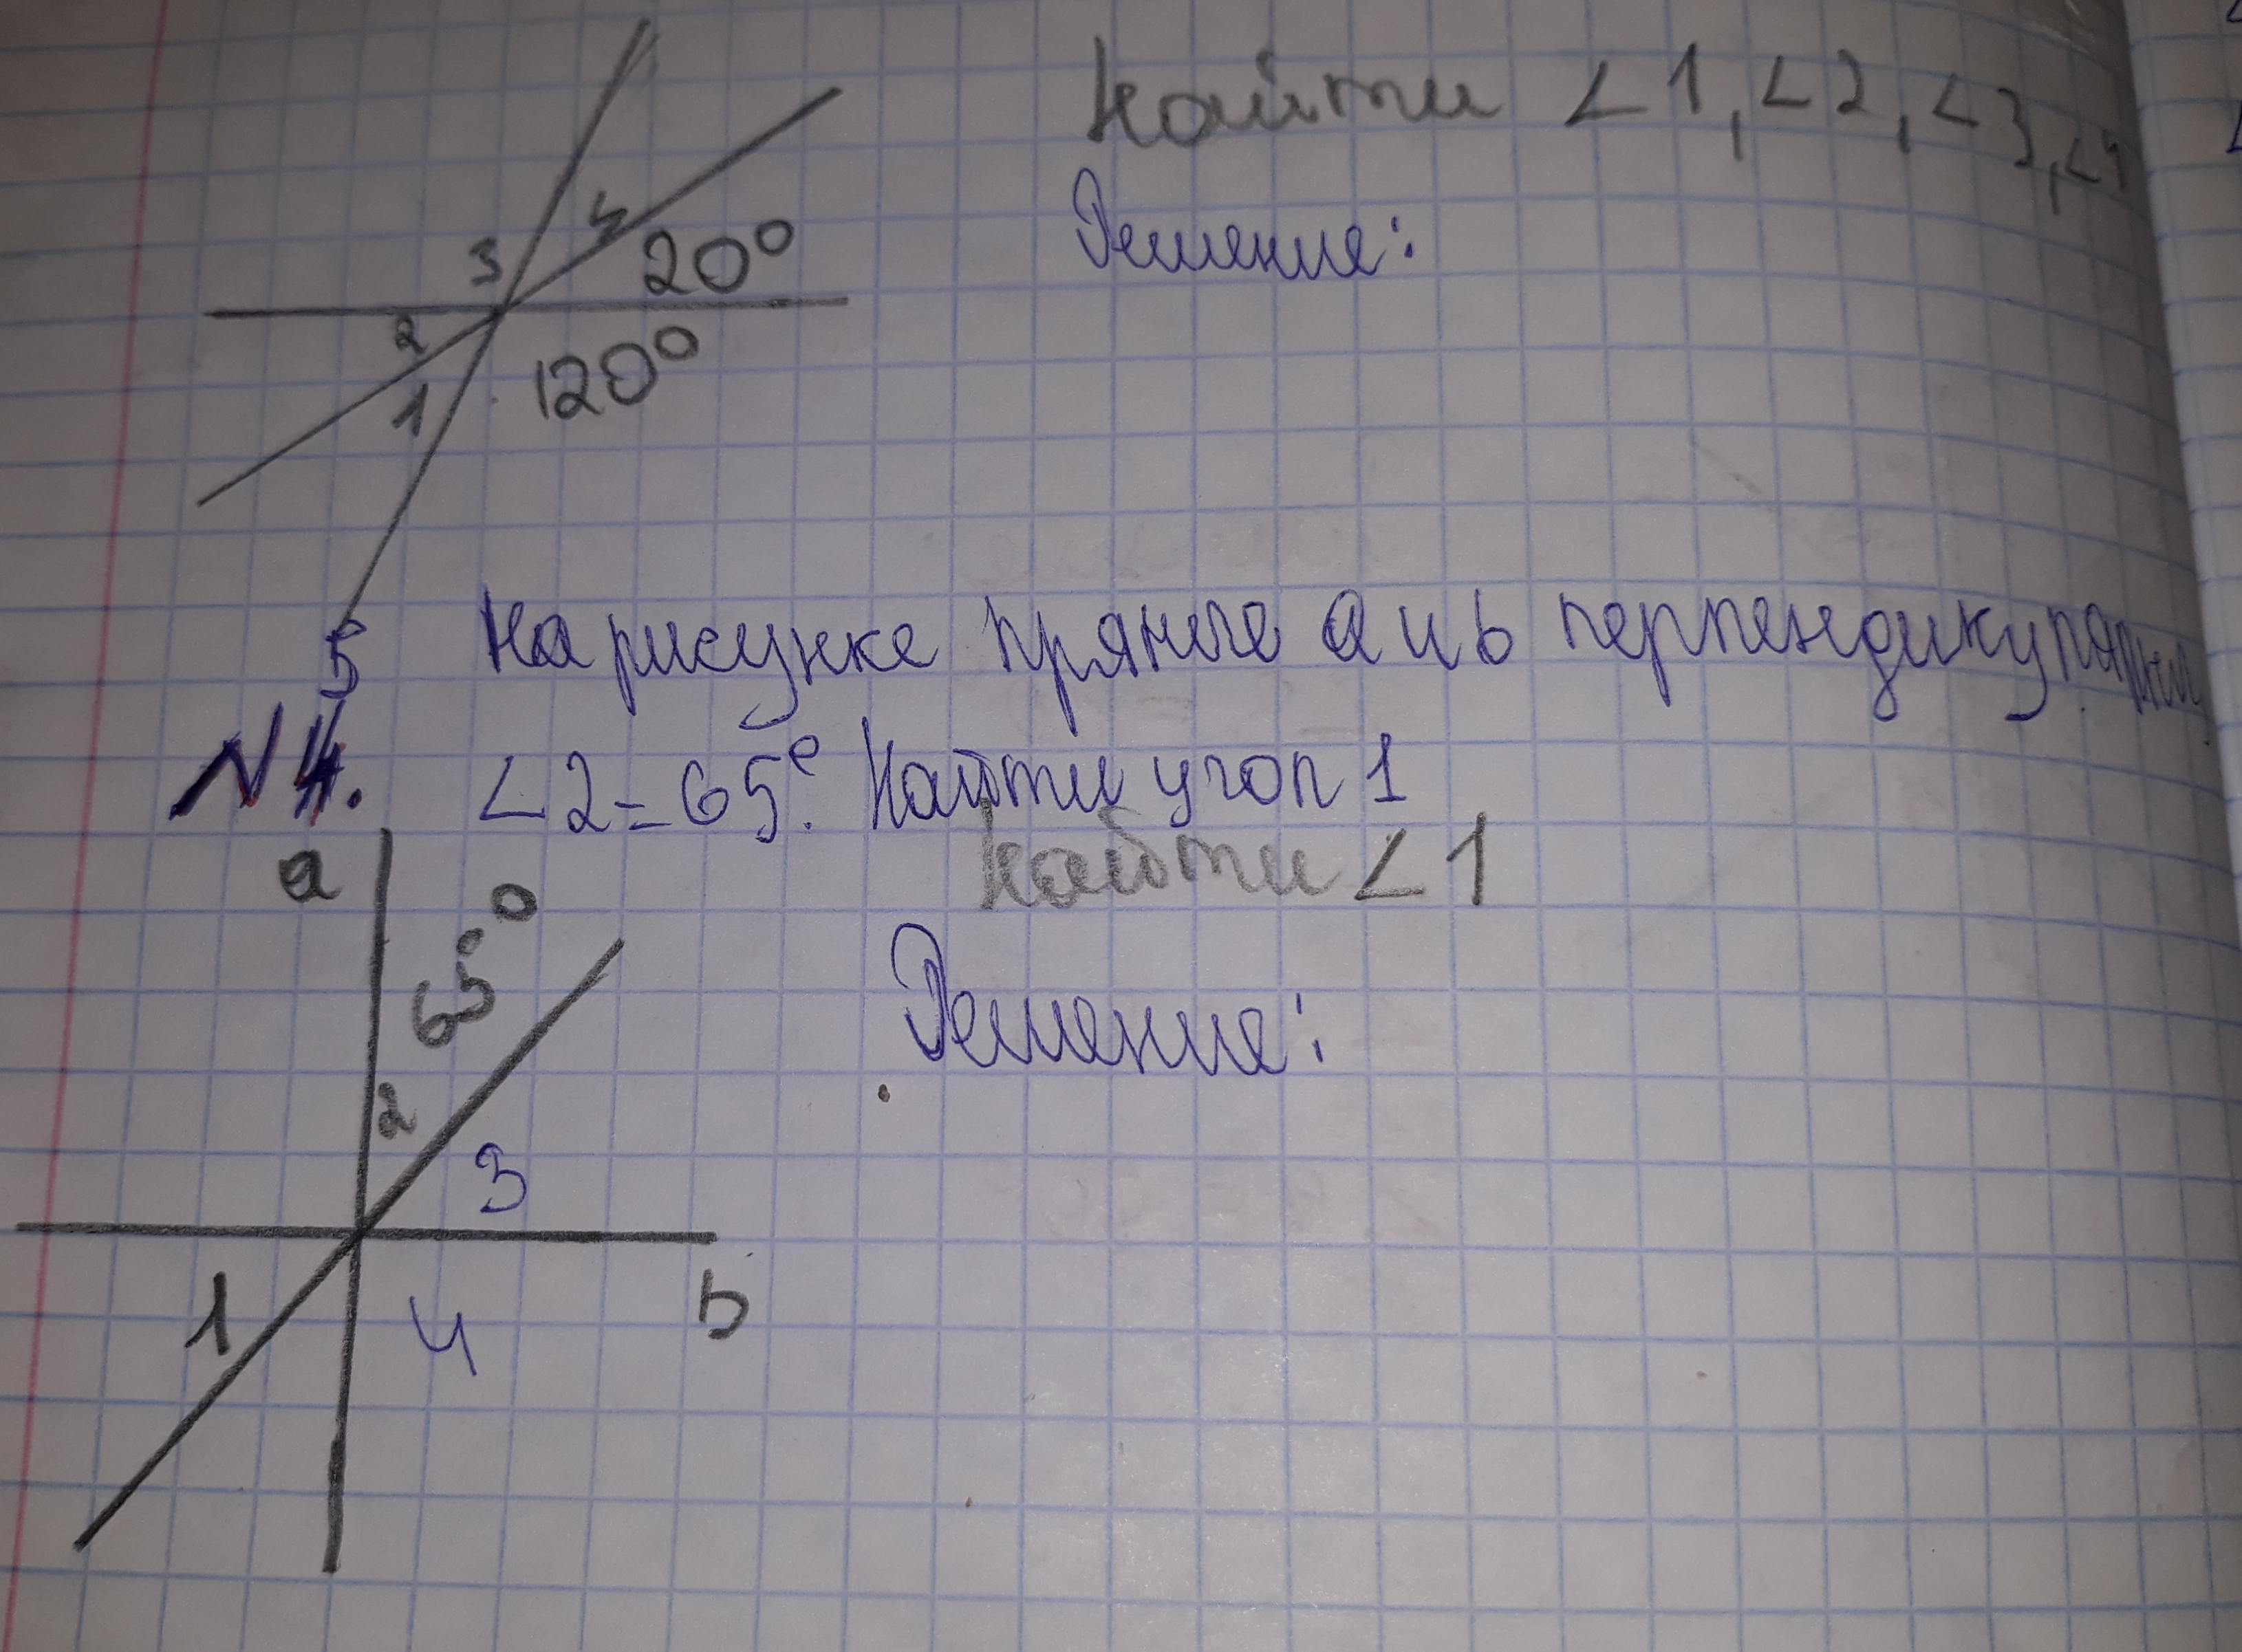 Найти ∠1, ∠2, ∠3, ∠4
Решение:
3 4 20°
2
1 120°
На рисунке прямые a и b перпендикулярны
№ 5.
∠2=65°. Найти угол 1
Найти ∠1
a 65°
Решение:
2
3
1 4 b